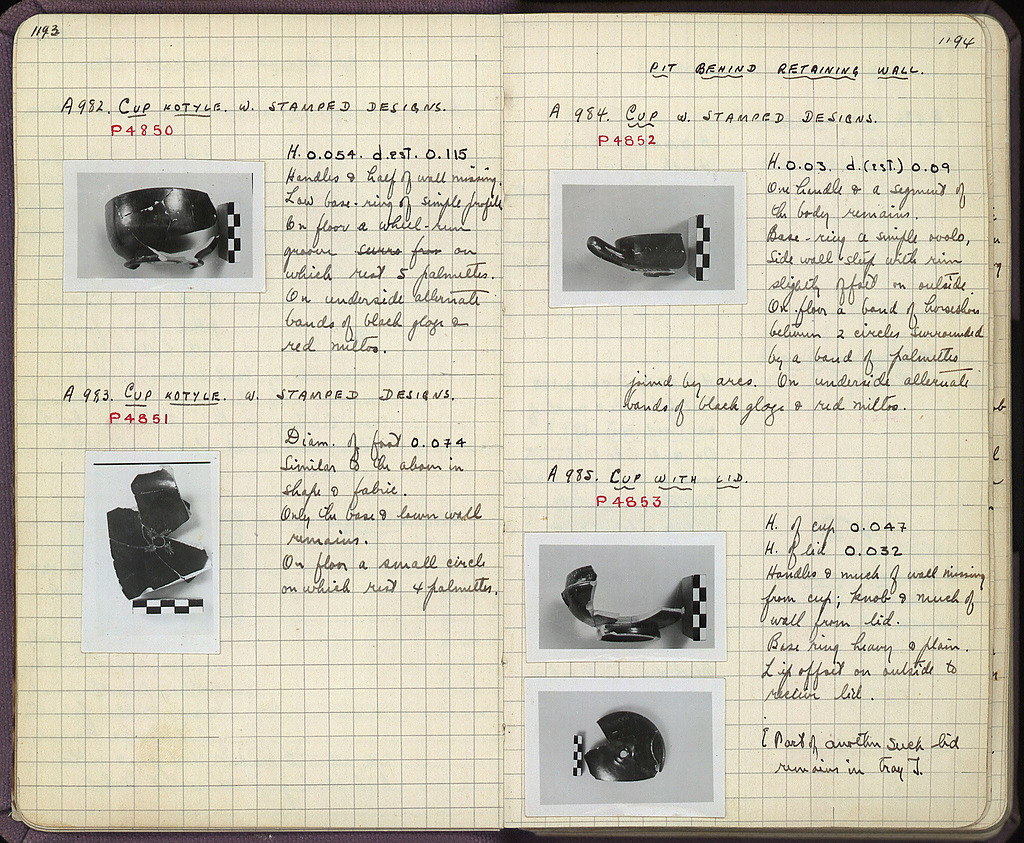 1193
A 982. CUP KOTYLE. W. STAMPED DESIGNS.
P4850
H. 0.054. d. est. 0.115
Handles & half of wall missing.
Low base-ring of simple profile
On floor a wheel-run
groove on
which rest 5 palmettes.
On underside alternate
bands of black glaze &
red miltos.
A 983. CUP KOTYLE. W. STAMPED DESIGNS.
P4851
Diam. of foot 0.074
Similar to the above in
shape & fabric.
Only the base & lower wall
remains.
On floor a small circle
on which rest 4 palmettes.
1194
PIT BEHIND RETAINING WALL.
A 984. CUP W. STAMPED DESIGNS.
P4852
H. 0.03. d. (est.) 0.09
One handle & a segment of
the body remains.
Base-ring a simple ovolo,
side wall steep with rim
slightly offset on outside.
On floor a band of horseshoes
between 2 circles surrounded
by a band of palmettes
joined by arcs. On underside alternate
bands of black glaze & red miltos.
A 985. CUP WITH LID.
P4853
H. of cup 0.047
H. of lid 0.032
Handles & much of wall missing
from cup; knob & much of
wall from lid.
Base ring heavy & plain.
Lip offset on outside to
receive lid.
[Part of another such lid
remains in tray J.